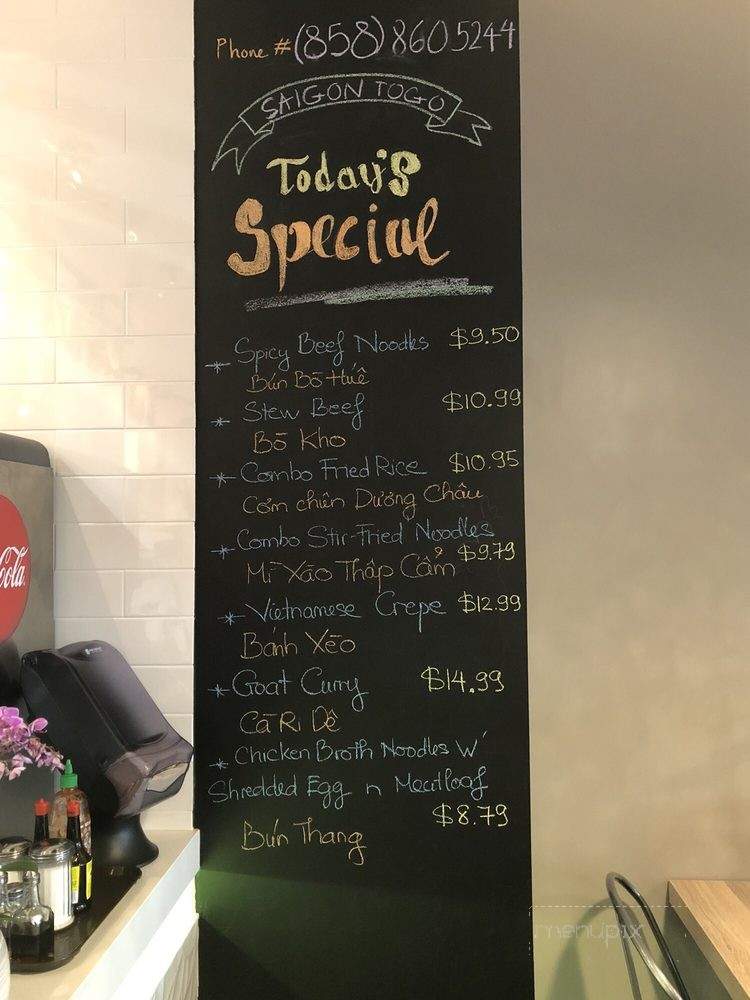 Phone # (858) 860 5244
SAIGON TOGO
Today's
Special
* Spicy Beef Noodles $9.50
Bún Bō Huế
* Stew Beef $10.99
Bō Kho
* Combo Fried Rice $10.95
Cơm chiên Dương Châu
* Combo Stir-Fried Noodles
$9.79
Mī Xāo Thấp Cẩm
* Vietnamese Crepe $12.99
Bánh Xēo
* Goat Curry $14.99
Cā Ri Dê
* Chicken Broth Noodles W'
Shredded Egg n Meatloaf
$8.79
Bún Thang
Cola
menupix